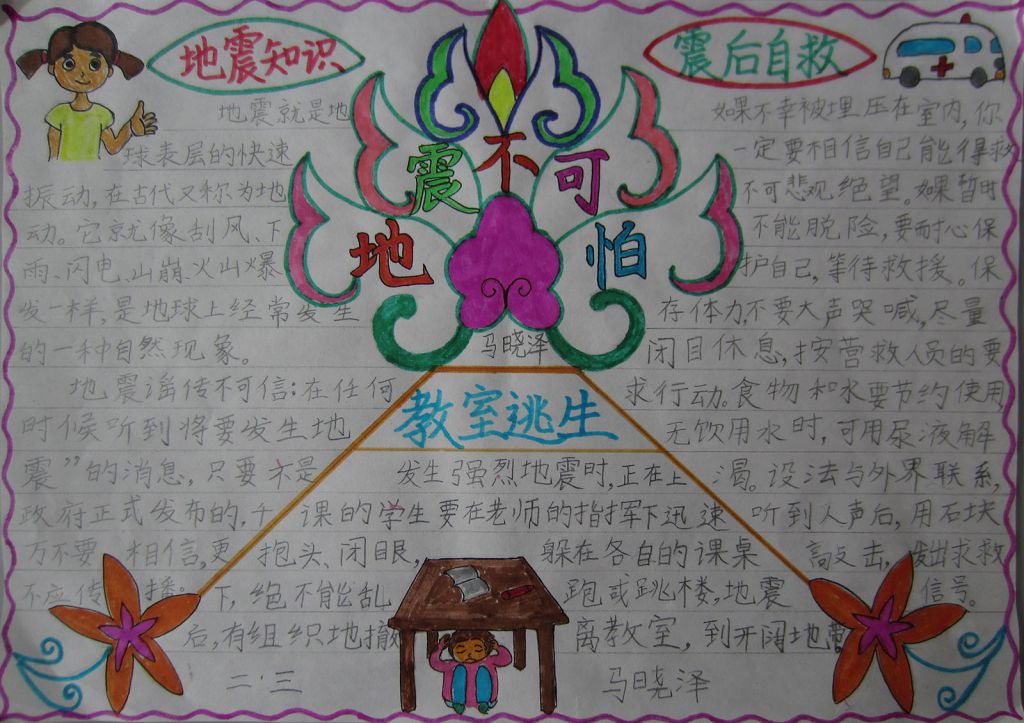 地震知识
地震就是地
球表层的快速
振动,在古代又称为地
动。它就像刮风、下
雨、闪电、山崩、火山爆
发一样,是地球上经常发生
的一种自然现象。
地震谣传不可信:在任何
时候听到将要发生地
震”的消息,只要不是
政府正式发布的,千
万不要相信,更
不应传播。
地震不可怕
马晓泽
教室逃生
发生强烈地震时,正在上
课的学生要在老师的指挥下迅速
抱头、闭眼,躲在各自的课桌
下,绝不能乱跑或跳楼,地震
后,有组织地撤离教室,到开阔地
震后自救
如果不幸被埋压在室内,你
一定要相信自己能得救
不可悲观绝望。如果暂时
不能脱险,要耐心保
护自己,等待救援。保
存体力,不要大声哭喊,尽量
闭目休息,按营救人员的要
求行动。食物和水要节约使用
无饮用水时,可用尿液解
渴。设法与外界联系,
听到人声后,用石块
敲击,发出求救
信号。
二·三
马晓泽